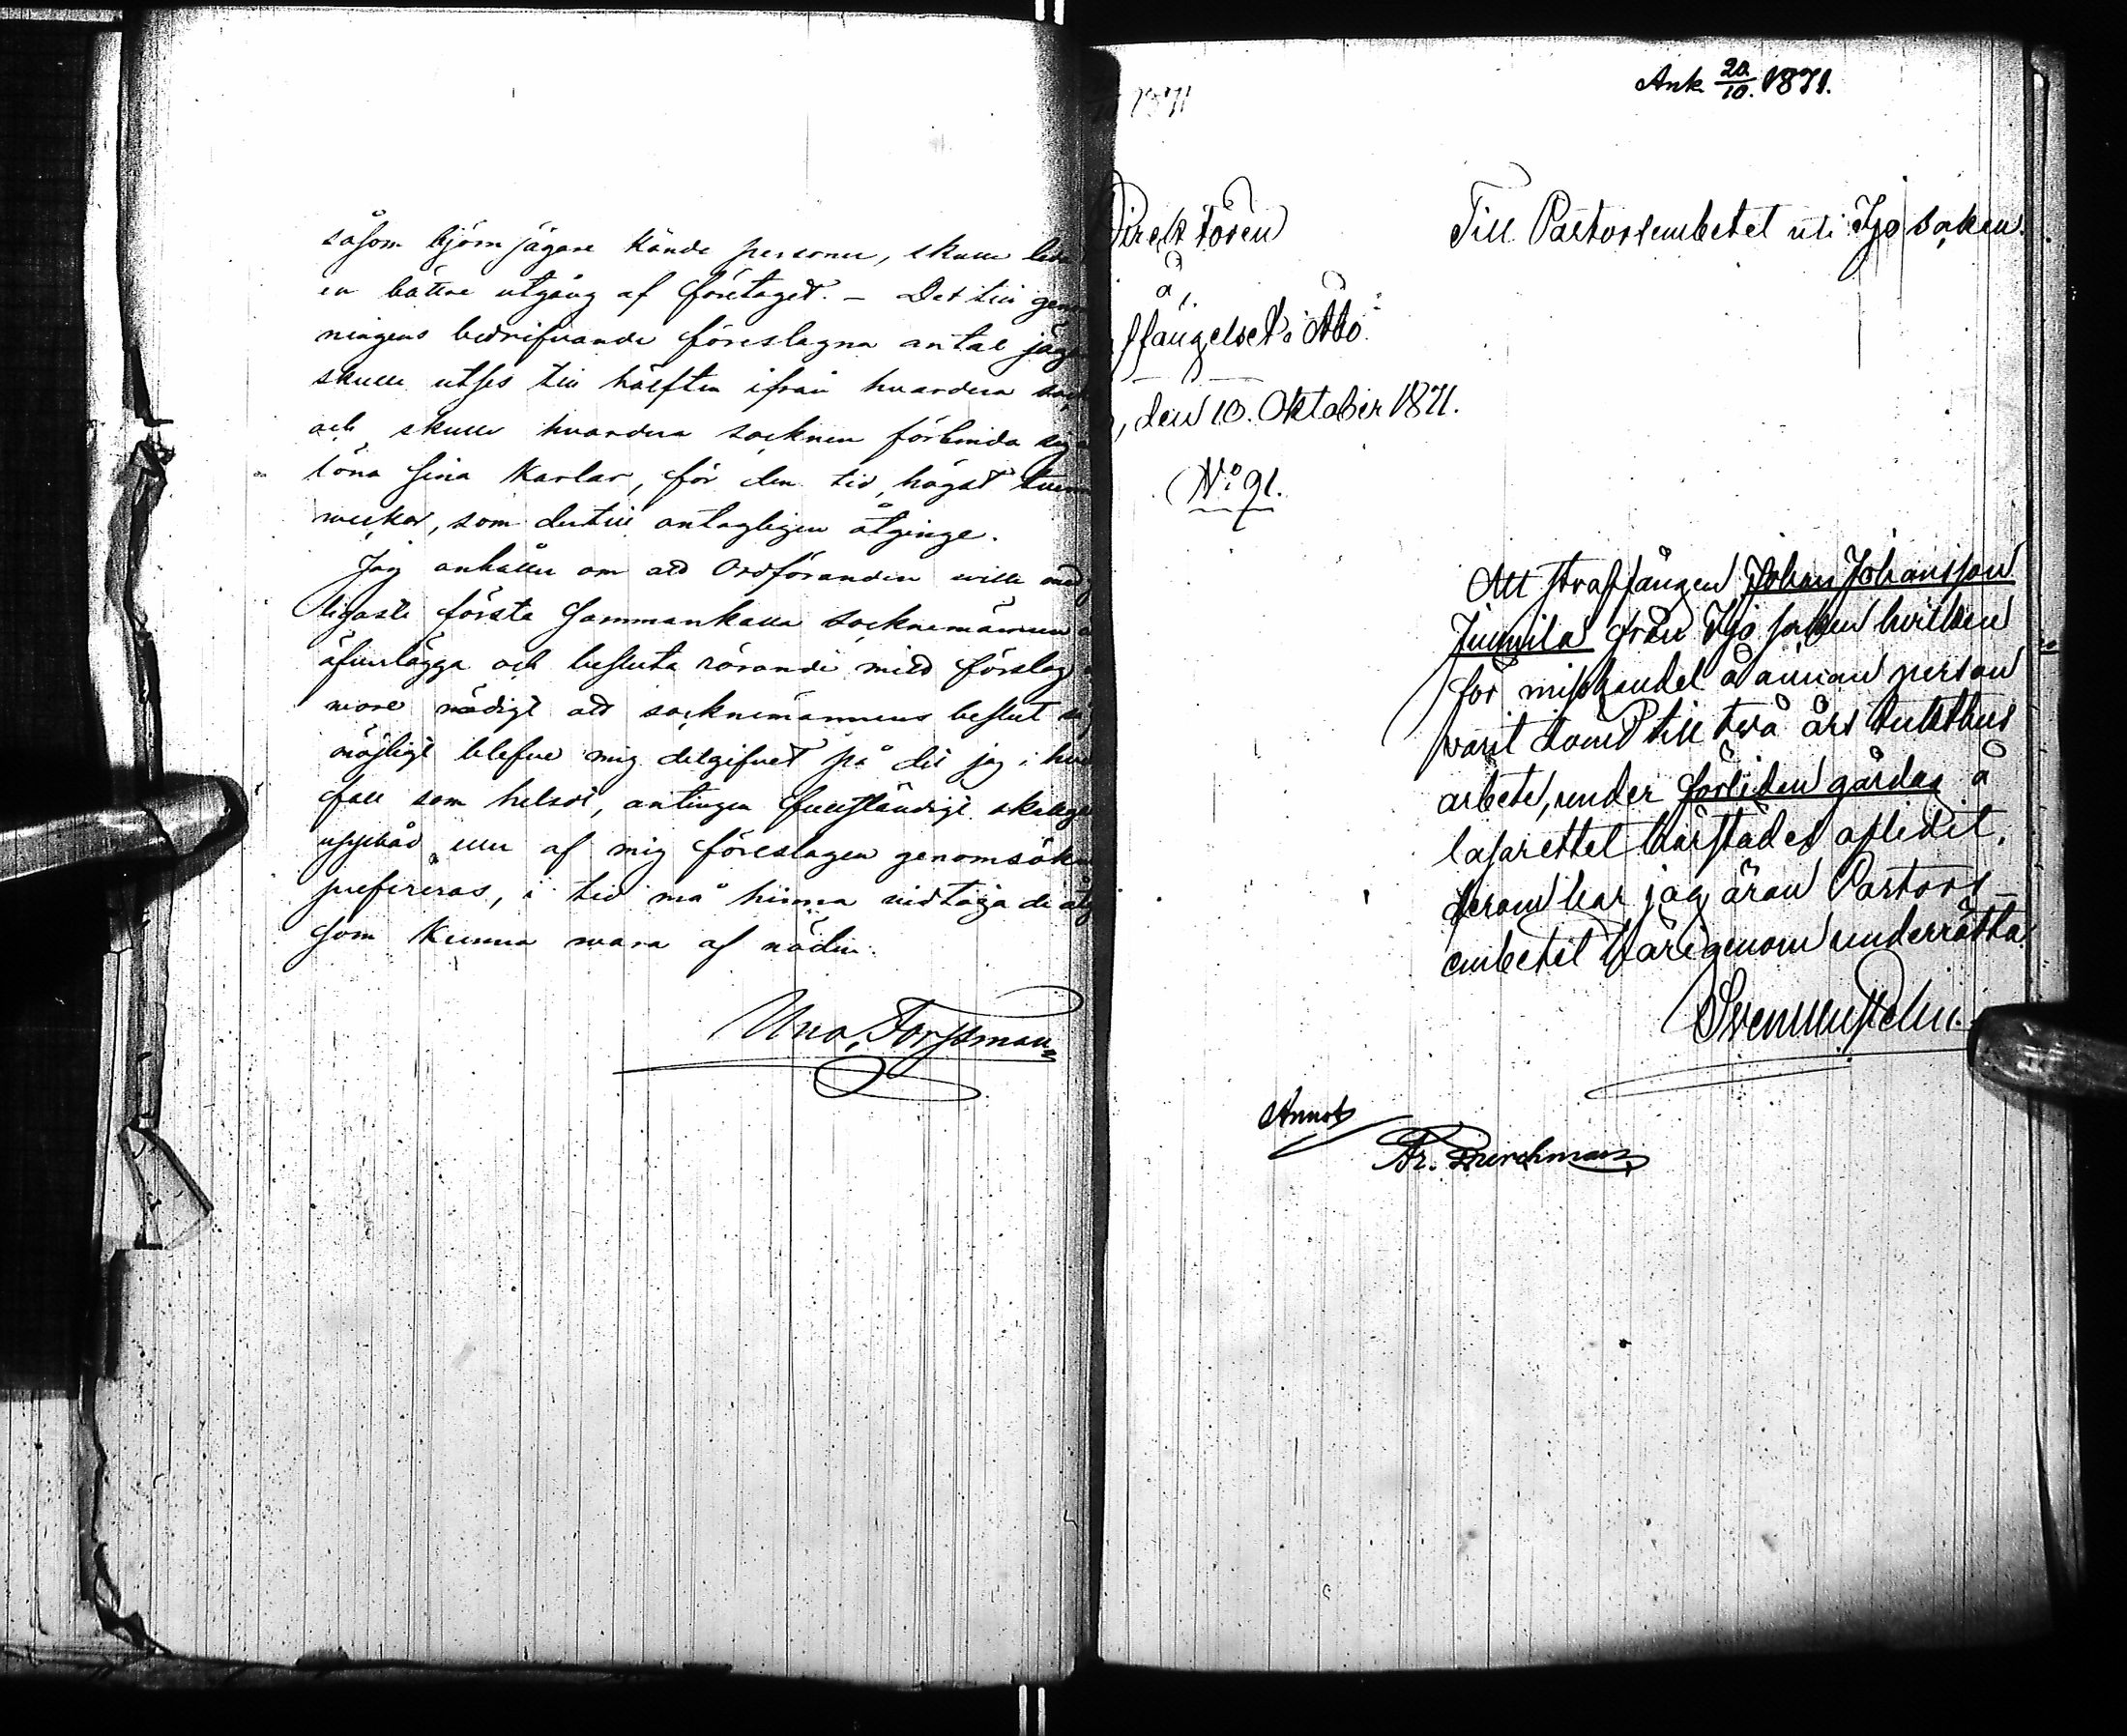 såsom björn jägare kände personer, skulle leda
en bättre utgång af företaget. – Det till gen
ningens bedrifvande föreslagna antal jäg
skulle utses till hälften ifrån hvardera
och skulle hvardera socknen förbinda sig
löna sina karlar, för den tid, högst
weckor, som dertill antagligen åtginge.
Jag anhåller om att Ordföranden wille
ligaste första sammankalla socknemännen
öfverlägga och besluta rörande mitt förslag
wore nödigt att socknemännens beslut
möjligt blefve mig delgifvet på det jag i
fall som helst, antingen fullständigt skallge
uppbåd eller af mig föreslagen genomsökn
prefereras, i tid må hinna vidtaga de åtg
som kunna wara af nöden.
Uno Forssman
1871
Ank 20/10. 1871.
Direktören
å
ffängelset i Åbo
, den 10. Oktober 1871.
No 91.
Till Pastorsembetet uti Ijo soken.
Att straffången Johan Johansson
Junnila från Ijo soken hvilken
för misshandel å annan person
varit dömd till två års tukthus
arbete, under förliden gårdag å
lasarettet härstädes aflidit,
derom har jag äran Pastors-
embetet härigenom underrätta.
Annot